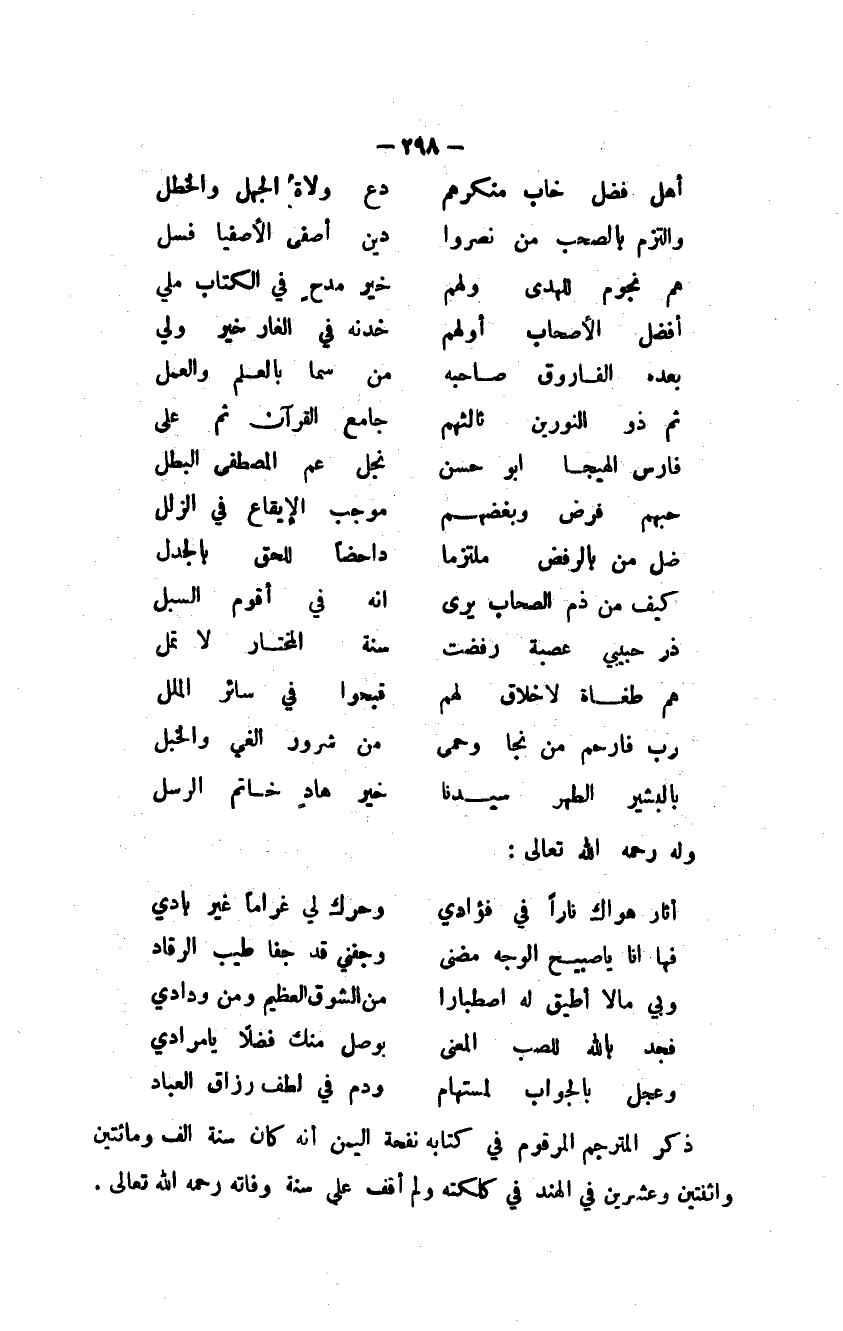 – ٢٩٨ –
أهل فضل خاب منكرهم دع ولاةُ الجهل والخطل
والتزم بالصحب من نصروا دين أصفى الأصفيا فسل
هم نجوم للهدى ولهم خير مدحٍ في الكتاب ملي
أفضل الأصحاب أولهم خدنه في الغار خير ولي
بعده الفاروق صاحبه من سما بالعلم والعمل
ثم ذو النورين ثالثهم جامع القرآن ثم على
فارس الهيجا ابو حسن نجل عم المصطفى البطل
حبهم فرض وبغضهم موجب الإيقاع في الزلل
ضل من بالرفض ملتزما داحضاً للحق بالجدل
كيف من ذم الصحاب يرى انه في أقوم السبل
ذر حبيبي عصبة رفضت سنة المختار لا تمل
هم طغاة لاخلاق لهم قبحوا في سائر الملل
رب فارحم من نجا وحمى من شرور الغي والخبل
بالبشير الطهر سيدنا خير هادٍ خاتم الرسل
وله رحمه الله تعالى :
أثار هواك ناراً في فؤادي وحرك لي غراماً غير بادي
فها انا ياصبيح الوجه مضنى وجفني قد جفا طيب الرقاد
وبي مالا أطيق له اصطبارا من الشوق العظيم ومن ودادي
فجد بالله للصب المعنى بوصل منك فضلًا يامرادي
وعجل بالجواب لمستهام ودم في لطف رزاق العباد
ذكر المترجم المرقوم في كتابه نفحة اليمن أنه كان سنة الف ومائتين
واثنتين وعشرين في الهند في كلكته ولم أقف على سنة وفاته رحمه الله تعالى .